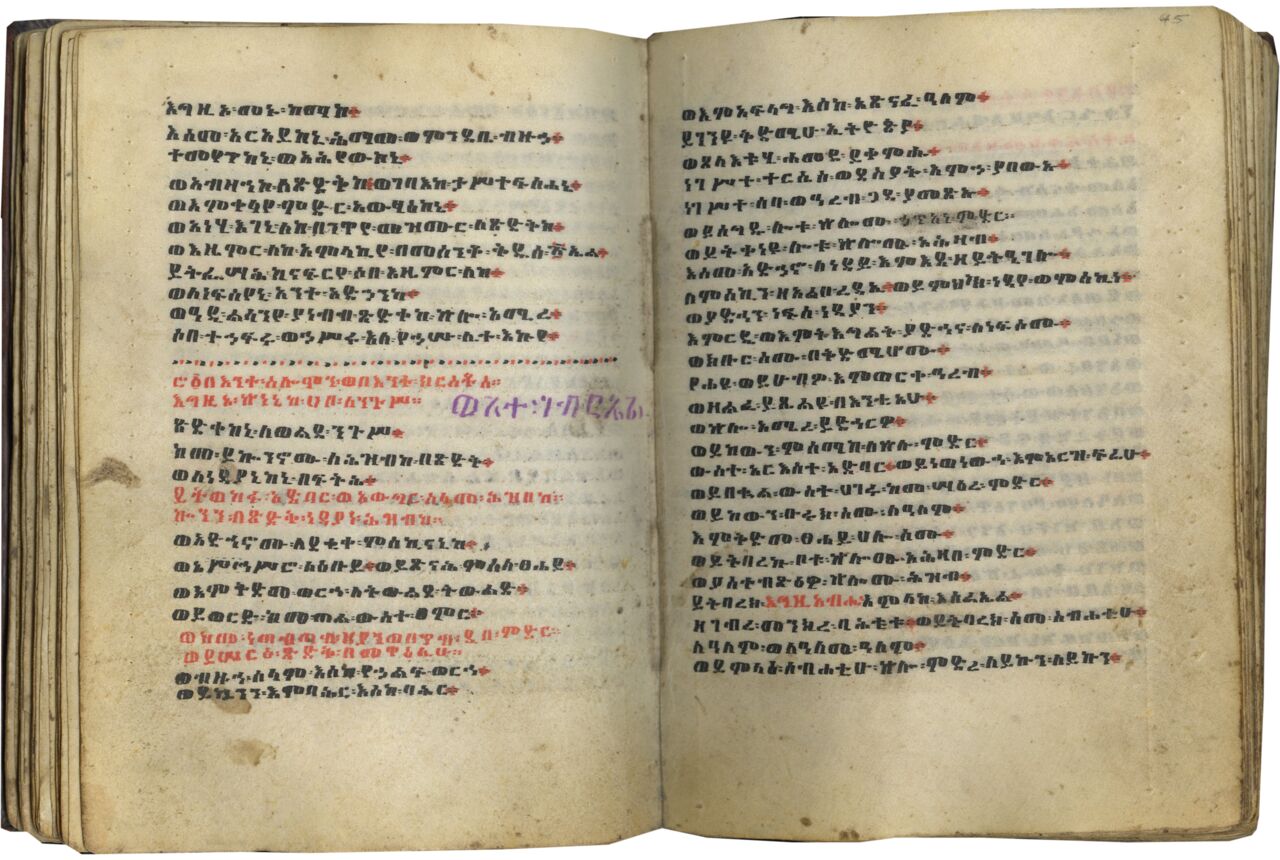 እግዚኦ፡መኑ፡ከማከ፨
እስመ፡አርአይከኒ፡ሕማመ፡ወምንዳቤ፡ብዙኅ፨
ተመየጥከኒ፡ወአሕየውከኒ፨
ወአብዛኅኮ፡ለጽድቅከ፨ወገባእከ፡ታሥተፍሥሐኒ፨
ወእምቀላየ፡ምድር፡አውፃእከኒ፨
ወአነሂ፡እገኒ፡ለከ፡በንዋየ፡መዝሙር፡ለጽድቅከ፨
ወእዜምር፡ለከ፡አምላኪየ፡በመሰንቆ፡ቅዱሰ፡
ይትፌሣሕ፡ከናፍርየ፡ሶበ፡እዜምር፡ለከ፨
ወለነፍስየኒ፡አንተ፡አድኀንካ፨
ወዓዲ፡ልሳንየ፡ያነብብ፡ጽድቀከ፡ኵሎ፡አሚረ፨
ሶበ፡ተኀፍሩ፡ወኀሥሩ፡እለ፡የኀሡ፡ሊተ፡እኩየ፨
በእንተ፡ሰሎሞን፡ወበእንተ፡ክርስቶስ።
እግዚኦ፡ኵነኔከ፡ሀቦ፡ለንጉሥ።
ጽድቀከኒ፡ለወልደ፡ንጉሥ፨
ከመ፡ይኰንኖሙ፡ለሕዝብከ፡በጽድቅ፨
ወለነዳያኒከ፡በፍትሕ፨
ይትወከፉ፡አድባር፡ወአውግር፡ሰላመ፡ሕዝብከ።
ኰንን፡በጽድቅ፡ነዳያነ፡ሕዝብከ።
ወአድኅኖሙ፡ለደቂቀ፡ምስኪናኒከ፨
ወአኅሥሮ፡ለዕቡይ፨ወይጸንሕ፡ምስለ፡ፀሐይ፨
ወእምቅድመ፡ወርኅ፡ለትውልደ፡ትውልድ፨
ወይወርድ፡ከመ፡ጠል፡ውስተ፡ፀምር፨
ወከመ፡ነጠብጣብ፡ዘያንጠበጥብ፡ዲበ፡ምድር።
ወይሠርፅ፡ጽድቅ፡በመዋዕሊሁ።
ወብዙኅ፡ሰላም፡እስከ፡የኀልፍ፡ወርኅ፨
ወይኴንን፡እምባሕር፡እስከ፡ባሕር፨
ወእምአፍላግ፡እስከ፡አጽናፈ፡ዓለም፨
ይገንዩ፡ቅድሜሁ፡ኢትዮጵያ፨
ወጸላእቱሂ፡ሐመደ፡ይቀምሑ፨
ነገሥተ፡ተርሴስ፡ወደሰያት፡አምኃ፡ያበውኡ፨
ነገሥተ፡ሳባ፡ወዓረብ፡ጋዳ፡ያመጽኡ፨
ወይሰግዱ፡ሎቱ፡ኵሎሙ፡ነገሥተ፡ምድር።
ወይትቀነዩ፡ሎቱ፡ኵሎሙ፡አሕዛብ፨
እስመ፡አድኀኖ፡ለነዳይ፡እምእደ፡ዘይትዔገሎ፨
ለምስኪን፡ዘአልቦ፡ረዳኤ፨ወይምህክ፡ነዳየ፡ወምስኪነ፨
ወያድኅን፡ነፍሰ፡ነዳያን፨
እምርዴ፡ወእምትዕግልት፡ያድኅና፡ለነፍሶሙ፨
ወክቡር፡ስሙ፡በቅድሜሆሙ፨
የሐዩ፡ወይሁብዎ፡እምወርቀ፡ዓረብ፨
ወዘልፈ፡ይጼልዩ፡በእንቲአሁ፨
ወኵሎ፡አሚረ፡ይድኅርዎ፨
ወይከውን፡ምስማከ፡ለኵሉ፡ምድር፨
ውስተ፡አርእስተ፡አድባር፨ወይነውኅ፡እምአርዝ፡ፍሬሁ፨
ወይበቍል፡ውስተ፡ሀገሩ፡ከመ፡ሣዕረ፡ምድር፨
ወይከውን፡ቡሩክ፡ስሙ፡ለዓለም፨
እምቅድመ፡ፀሐይ፡ሀሎ፡ስሙ፨
ወይትባረኩ፡ቦቱ፡ኵሎሙ፡አሕዛበ፡ምድር፨
ወያስተበጽዕዎ፡ኵሎሙ፡ሕዝብ፨
ይትባረክ፡እግዚአብሔር፡አምላከ፡እስራኤል፨
ዘገብረ፡መንክረ፡ባሕቲቱ፨ወይትባረክ፡ስመ፡ስብሐቲሁ፨
ለዓለም፡ወለዓለመ፡ዓለም፨
ወይምላእ፡ስብሐቲሁ፡ኵሎ፡ምድረ፡ለይኩን፡ለይኩን፨
45